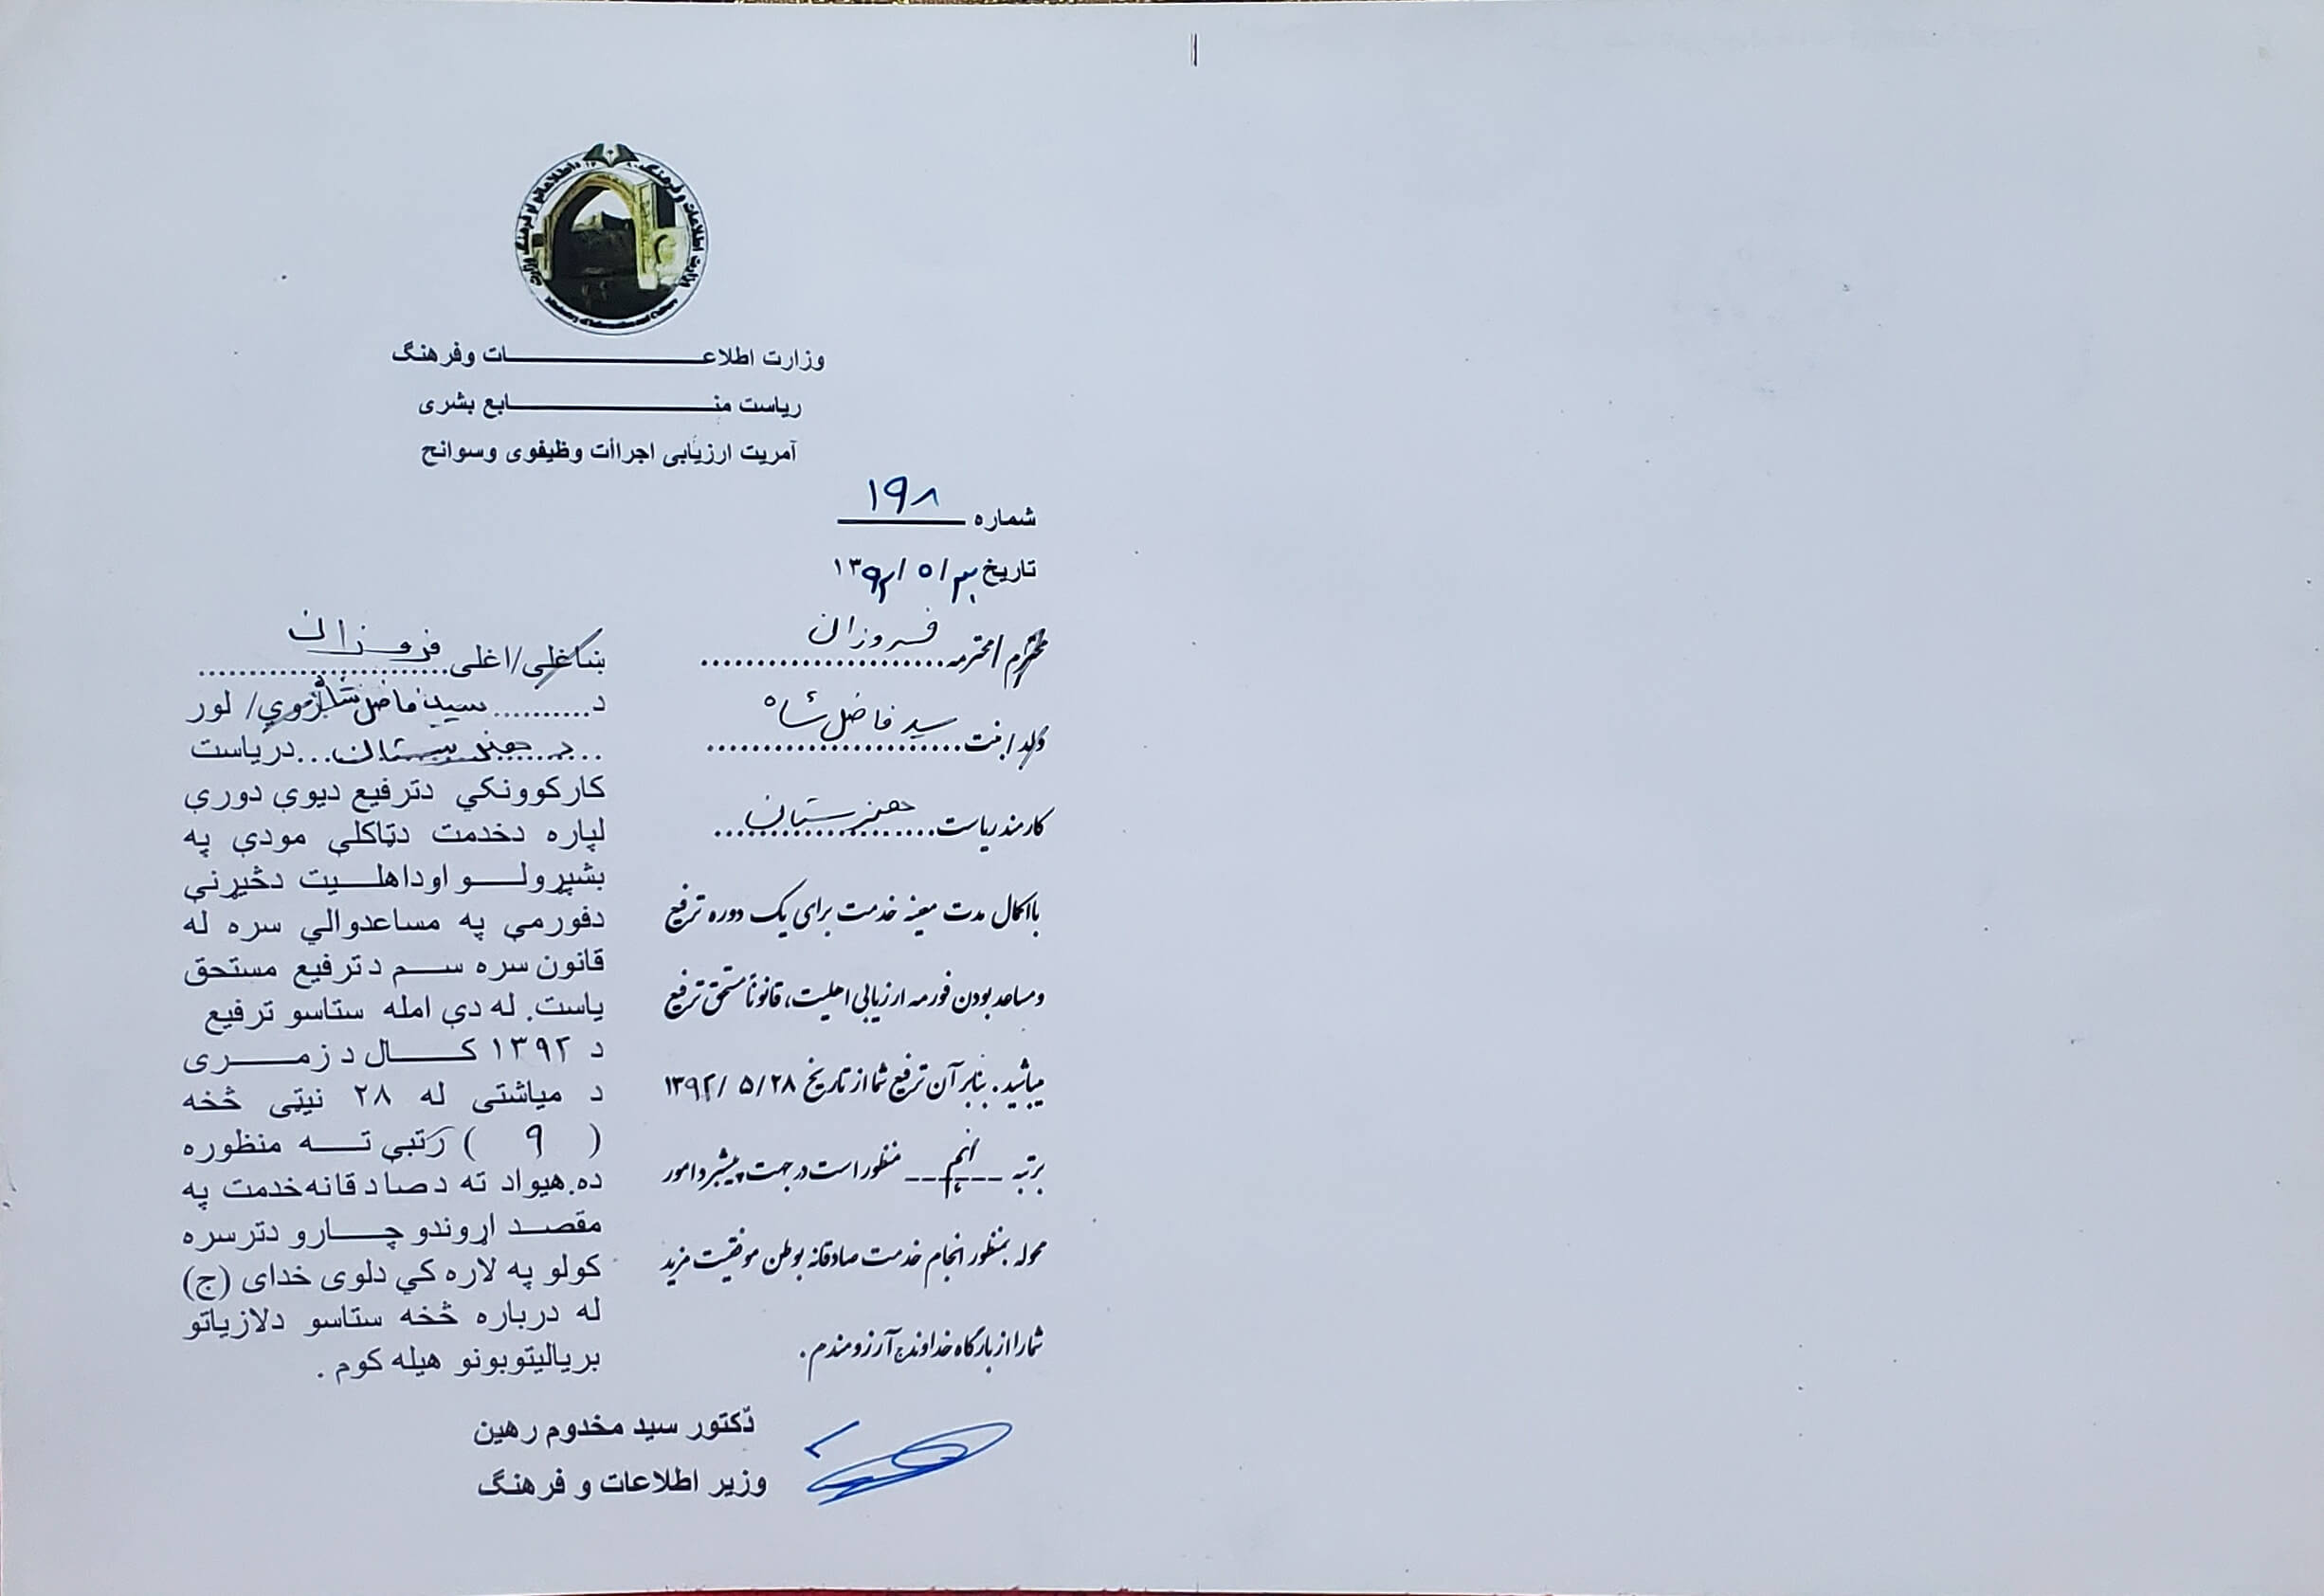 وزارت اطلاعات وفرهنگ
ریاست منابع بشری
آمریت ارزیابی اجراأت وظیفوی وسوانح
شماره ۱۹۸
تاریخ ۳۰/ ۵/ ۱۳۹۲
محترم/محترمه فروزان
ولد/بنت سید فاضل شاه
کارمند ریاست هنرستان
باکمال مدت معینه خدمت برای یک دوره ترفیع
ومساعد بودن فورمه ارزیابی اهلیت، قانوناً مستحق ترفیع
میباشید. بنابرآن ترفیع شما از تاریخ ۲۸/ ۵/ ۱۳۹۲
برتبه نهم منظور است در جهت پیشبرد امور
محوله بمنظور انجام خدمت صادقانه بوطن موفقیت مزید
شما را از بارگاه خداوندج آرزومندم.
ښاغلی/اغلی فروزان
د سید فاضل شاه زوي/ لور
د هنرستان دریاست
کارکوونکي دترفیع دیوې دورې
لپاره دخدمت دټاکلې مودې په
بشپړولو اوداهلیت دڅیړنې
دفورمې په مساعدوالي سره له
قانون سره سم دترفیع مستحق
یاست. له دې امله ستاسو ترفیع
د ۱۳۹۲ کال د زمری
د میاشتی له ۲۸ نیټی څخه
( ۹ ) رتبې ته منظوره
ده.هیواد ته دصادقانه خدمت په
مقصد اړوندو چارو دترسره
کولو په لاره کي دلوی خدای (ج)
له درباره څخه ستاسو دلازیاتو
بریالیتوبونو هیله کوم .
دکتور سید مخدوم رهین
وزیر اطلاعات و فرهنگ